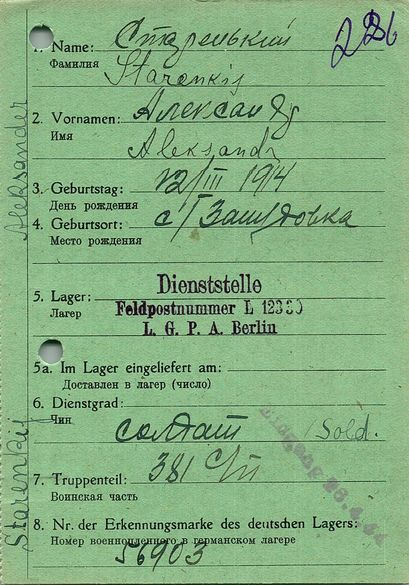 1. Name: Старенький
Фамилия
Starenkij
2. Vornamen: Александр
Имя
Aleksandr
3. Geburtstag: 12/III 1914
День рождения
4. Geburtsort: с/
Место рождения
5. Lager:
Лагер
Dienststelle
Feldpostnummer L 12330
L. G. P. A. Berlin
5a. Im Lager eingeliefert am:
Доставлен в лагер (число)
6. Dienstgrad:
Чин
солдат (Sold.
7. Truppenteil: 381 с/п
Воинская часть
8. Nr. der Erkennungsmarke des deutschen Lagers:
Номер военнопленного в германском лагере
56903
Starenkij Aleksander